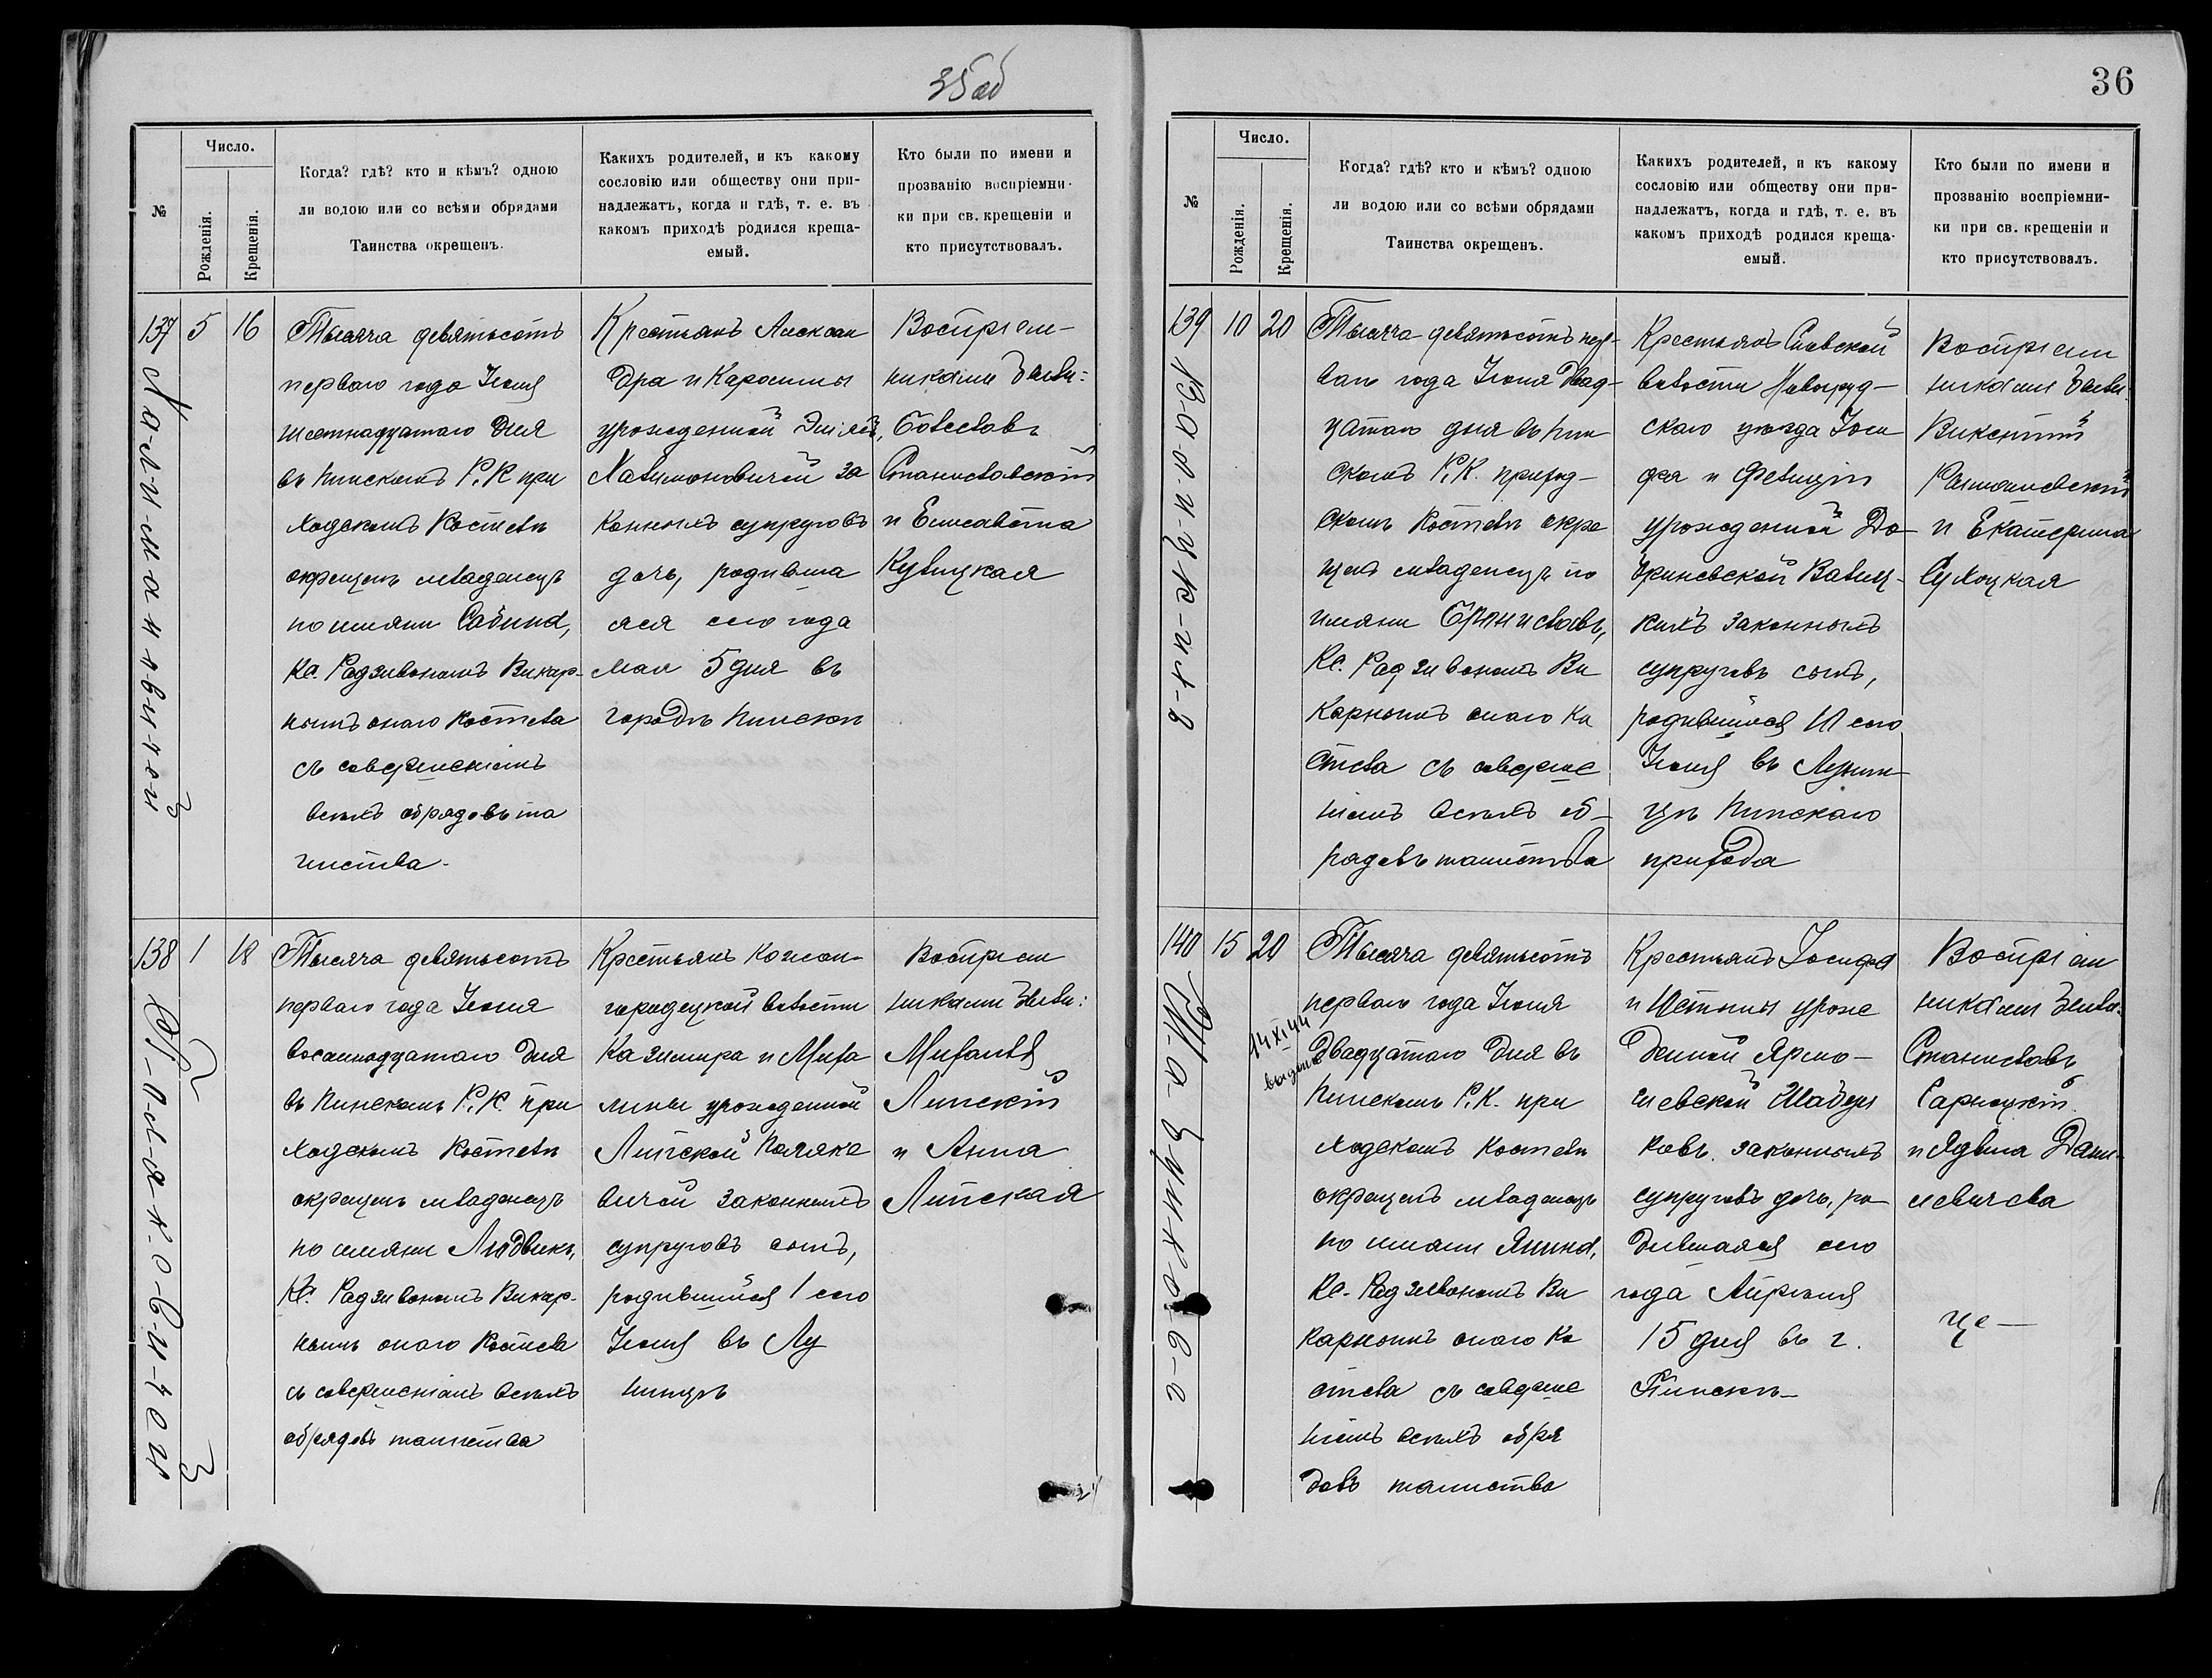 35 об
№
Число.
Рожденія.
Крещенія.
Когда? гдѣ? кто и кѣмъ? одною
ли водою или со всѣми обрядами
Таинства окрещенъ.
Какихъ родителей, и къ какому
сословію или обществу они при-
надлежатъ, когда и гдѣ, т. е. въ
какомъ приходѣ родился креща-
емый.
Кто были по имени и
прозванію воспріемни-
ки при св. крещеніи и
кто присутствовалъ.
137
5
16
Тысяча девятьсотъ
перваго года Іюня
шестнадцатаго дня
въ Пинскомъ Р. К. при
ходскомъ Костелѣ
окрещенъ младенецъ
по имяни Сабина,
Кс. Радзивономъ Викар-
нымъ онаго Костела
съ совершеніемъ
всѣхъ обрядовъ та
инства.
Крестьянъ Алексан
дра и Каролины
урожденной
за
конныхъ супруговъ
дочь, родивша
яся сего года
мая 5 дня въ
городѣ Пинскѣ
Воспріем-
никами были:
Болеславъ
Станиславскій
и Елисавета
Кулицкая
138
1
18
Тысяча девятьсотъ
перваго года Іюня
восемнадцатаго дня
въ Пинскомъ Р. К. при
ходскомъ Костелѣ
окрещенъ младенецъ
по имяни Людвикъ,
Кс. Радзивономъ Викар-
нымъ онаго Костела
съ совершеніемъ всѣхъ
обрядовъ таинства
Крестьянъ Кожан-
городецкой волости
Казимира и Миха
лины урожденной
Липской Поляке
вичей законныхъ
супруговъ сынъ,
родившійся 1 сего
Іюня въ Лу
нинцѣ
Воспріем
никами были:
Михаилъ
Липскій
и Анна
Липская
36
№
Число.
Рожденія.
Крещенія.
Когда? гдѣ? кто и кѣмъ? одною
ли водою или со всѣми обрядами
Таинства окрещенъ.
Какихъ родителей, и къ какому
сословію или обществу они при-
надлежатъ, когда и гдѣ, т. е. въ
какомъ приходѣ родился креща-
емый.
Кто были по имени и
прозванію воспріемни-
ки при св. крещеніи и
кто присутствовалъ.
139
10
20
В-а-л-и-ц-к-і-й
Тысяча девятьсотъ пер-
ваго года Іюня двад-
цатаго дня въ Пин
скомъ Р. К. приход-
скомъ Костелѣ окре
щенъ младенецъ по
имяни Брониславъ,
Кс. Радзивономъ Ви
карнымъ онаго Ко
стела съ соверше
ніемъ всѣхъ об-
рядовъ таинства
Крестьянъ
волости Новогруд-
скаго уѣзда Іоси
фа и Фелиціи
урожденной До-
бриневской Валиц-
кихъ законныхъ
супруговъ сынъ,
родившійся 10 сего
Іюня въ Лунин-
цѣ Пинскаго
прихода
Воспріем
никами были:
Викентій
и Екатерина
Сухоцкая
140
15
20
14 XI 44
выдана
Тысяча девятьсотъ
перваго года Іюня
двадцатаго дня въ
Пинскомъ Р. К. при
ходскомъ Костелѣ
окрещенъ младенецъ
по имяни Янина,
Кс. Радзивономъ Ви
карнымъ онаго Ко
стела съ соверше
ніемъ всѣхъ обря
довъ таинства
Крестьянъ Іосифа
и Іустины урож
денной Ярмо-
Шабун
ковъ законныхъ
супруговъ дочь, ро
дившаяся сего
года Апрѣля
15 дня въ г.
Пинскѣ
Воспріем
никами были:
Станиславъ
Сарнацкій
и Ядвига Дани-
левичева